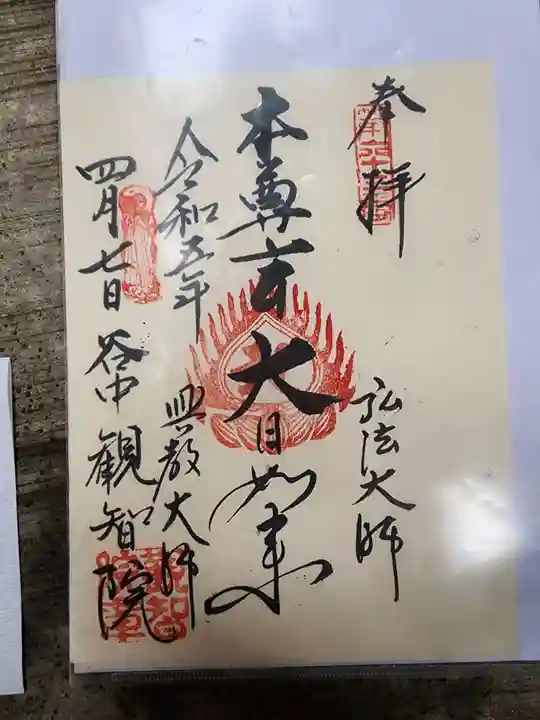 奉拝
弘法大師
本尊
大日如来
興教大師
令和五年
四月七日
谷中観智院